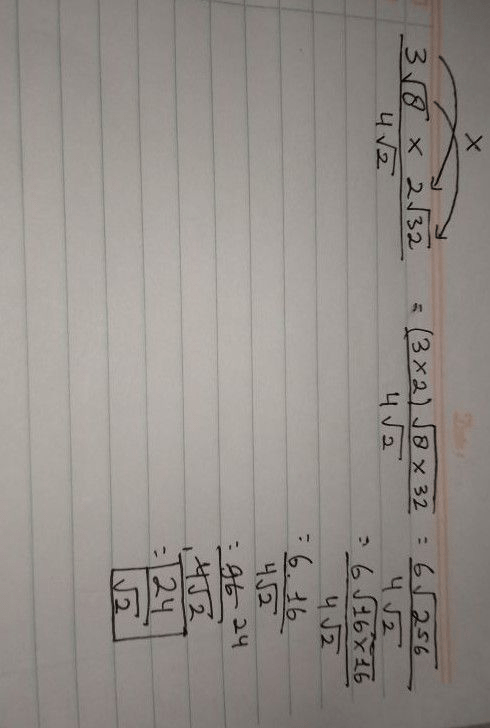 ×
3√8 × 2√32 / 4√2 = (3×2) √8×32 / 4√2 = 6√256 / 4√2
= 6√16×16 / 4√2
= 6.16 / 4√2
= 96 24 / 4√2
= 24 / √2